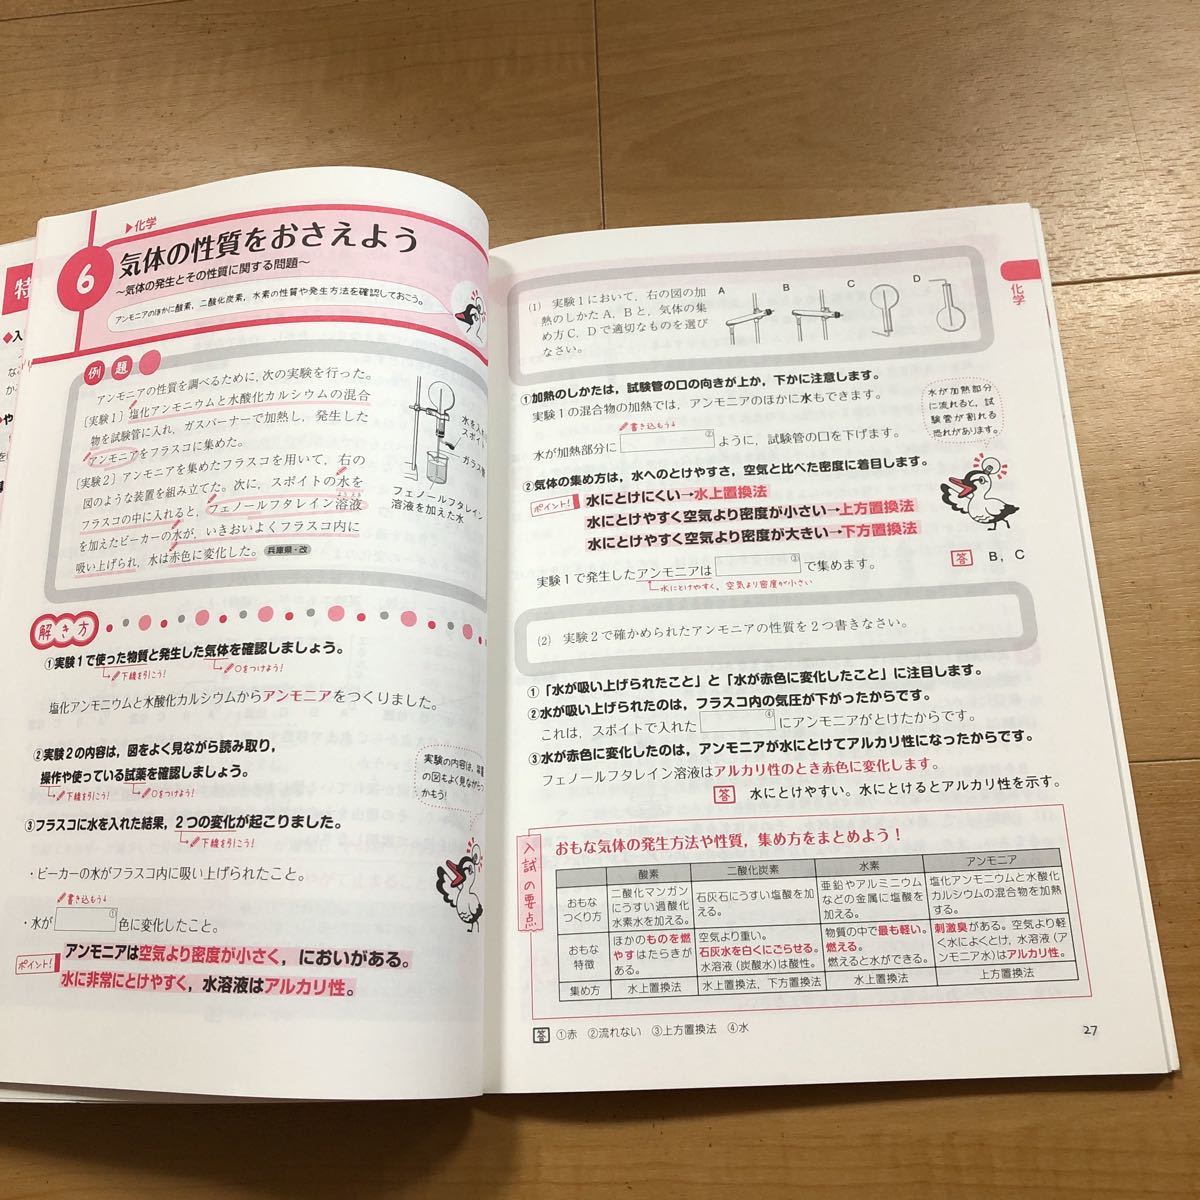 特
◆入
▶化学
6
気体の性質をおさえよう
～気体の発生とその性質に関する問題～
アンモニアのほかに酸素，二酸化炭素，水素の性質や発生方法を確認しておこう。
例題
アンモニアの性質を調べるために，次の実験を行った。
〔実験1〕塩化アンモニウムと水酸化カルシウムの混合
物を試験管に入れ，ガスバーナーで加熱し，発生した
アンモニアをフラスコに集めた。
〔実験2〕アンモニアを集めたフラスコを用いて，右の
図のような装置を組み立てた。次に，スポイトの水を
フラスコの中に入れると，フェノールフタレイン溶液
を加えたビーカーの水が，いきおいよくフラスコ内に
吸い上げられ，水は赤色に変化した。 兵庫県・改
水を入れ
スポイ
ガラス
フェノールフタレイン
溶液を加えた水
解き方
①実験1で使った物質と発生した気体を確認しましょう。
下線を引こう！ ○をつけよう！
塩化アンモニウムと水酸化カルシウムからアンモニアをつくりました。
②実験2の内容は，図をよく見ながら読み取り，
操作や使っている試薬を確認しましょう。
下線を引こう！ ○をつけよう！
実験の内容は，装置
の図もよく見ながらつ
かもう！
③フラスコに水を入れた結果，2つの変化が起こりました。
下線を引こう！
・ビーカーの水がフラスコ内に吸い上げられたこと。
書き込もう↓
・水が ① 色に変化したこと。
ポイント！
アンモニアは空気より密度が小さく，においがある。
水に非常にとけやすく，水溶液はアルカリ性。
化学
(1) 実験1において，右の図の加
熱のしかたA，Bと，気体の集
め方C，Dで適切なものを選び
なさい。
A B C D
①加熱のしかたは，試験管の口の向きが上か，下かに注意します。
実験1の混合物の加熱では，アンモニアのほかに水もできます。
書き込もう↓
水が加熱部分に ② ように，試験管の口を下げます。
水が加熱部分
に流れると，試
験管が割れる
恐れがあります。
②気体の集め方は，水へのとけやすさ，空気と比べた密度に着目します。
ポイント！
水にとけにくい→水上置換法
水にとけやすく空気より密度が小さい→上方置換法
水にとけやすく空気より密度が大きい→下方置換法
実験1で発生したアンモニアは ③ で集めます。
水にとけやすく，空気より密度が小さい
答 B，C
(2) 実験2で確かめられたアンモニアの性質を2つ書きなさい。
①「水が吸い上げられたこと」と「水が赤色に変化したこと」に注目します。
②水が吸い上げられたのは，フラスコ内の気圧が下がったからです。
これは，スポイトで入れた ④ にアンモニアがとけたからです。
③水が赤色に変化したのは，アンモニアが水にとけてアルカリ性になったからです。
フェノールフタレイン溶液はアルカリ性のとき赤色に変化します。
答 水にとけやすい。水にとけるとアルカリ性を示す。
入試の要点
おもな気体の発生方法や性質，集め方をまとめよう！
酸素 二酸化炭素 水素 アンモニア
おもな
つくり方
二酸化マンガン
にうすい過酸化
水素水を加える。
石灰石にうすい塩酸を加
える。
亜鉛やアルミニウム
などの金属に塩酸を
加える。
塩化アンモニウムと水酸化
カルシウムの混合物を加熱
する。
おもな
特徴
ほかのものを燃
やすはたらきが
ある。
空気より重い。
石灰水を白くにごらせる。
水溶液（炭酸水）は酸性。
物質の中で最も軽い。
燃える。
燃えると水ができる。
刺激臭がある。空気より軽
く水によくとけ，水溶液（ア
ンモニア水）はアルカリ性。
集め方 水上置換法 水上置換法，下方置換法 水上置換法 上方置換法
答 ①赤 ②流れない ③上方置換法 ④水
27